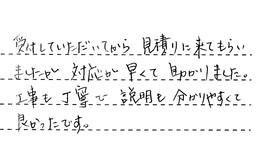 受付していただいてから 見積りに来てもらい
ましたが 対応が 早くて 助かりました。
工事も 丁寧で 説明も 分かりやすくて
良かったです。